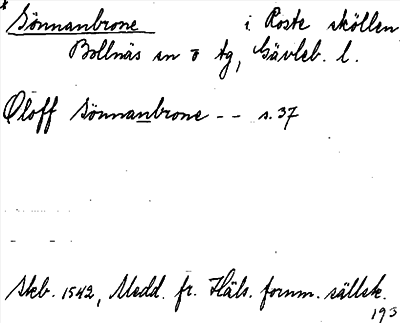 Sönnanbrone i Roste sköllen
Bollnäs sn o tg, Gävleb. l.
Oloff Sönnanbrone - - s. 37
Skb. 1542, Medd. fr. Häls. fornm. sällsk.
193